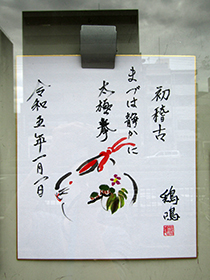 初稽古
まづは静かに
太極拳
令和五年一月一日
鶏鳴